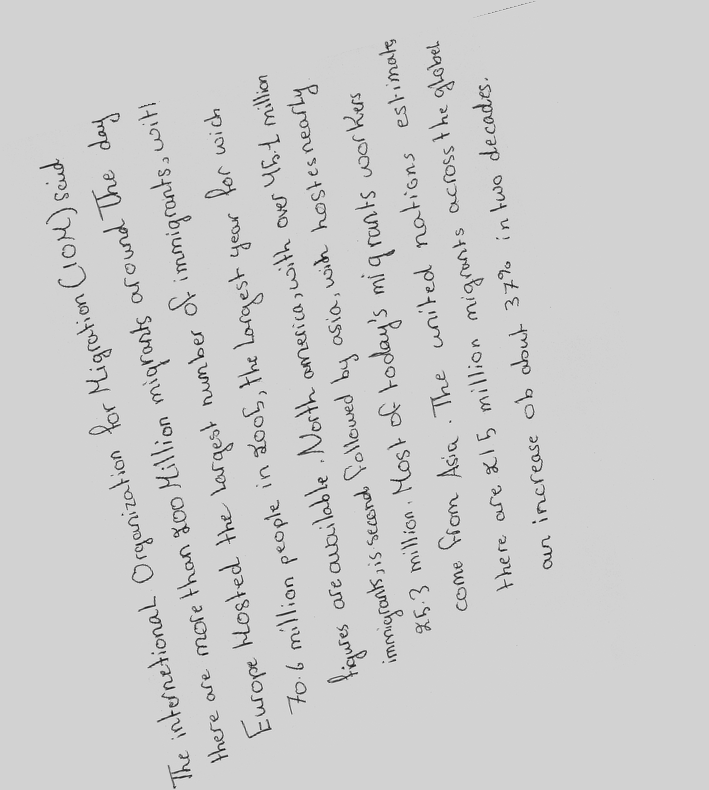 The internetional Organization for Migration (IOM) said
there are more than 200 Million migrants around The day
there hosted the largest number of immigrants, with
Europe Hosted the largest year for wich
70.6 million people in 2005, the largest year for wich
figures are available. North america, with over 45.1 million
immigrants, is second followed by asia, with hostes nearly
25.3 million. Most of today's migrants workers
come from Asia. The united nations estimate
there are 215 million migrants across the global
an increase ob about 37% in two decades.